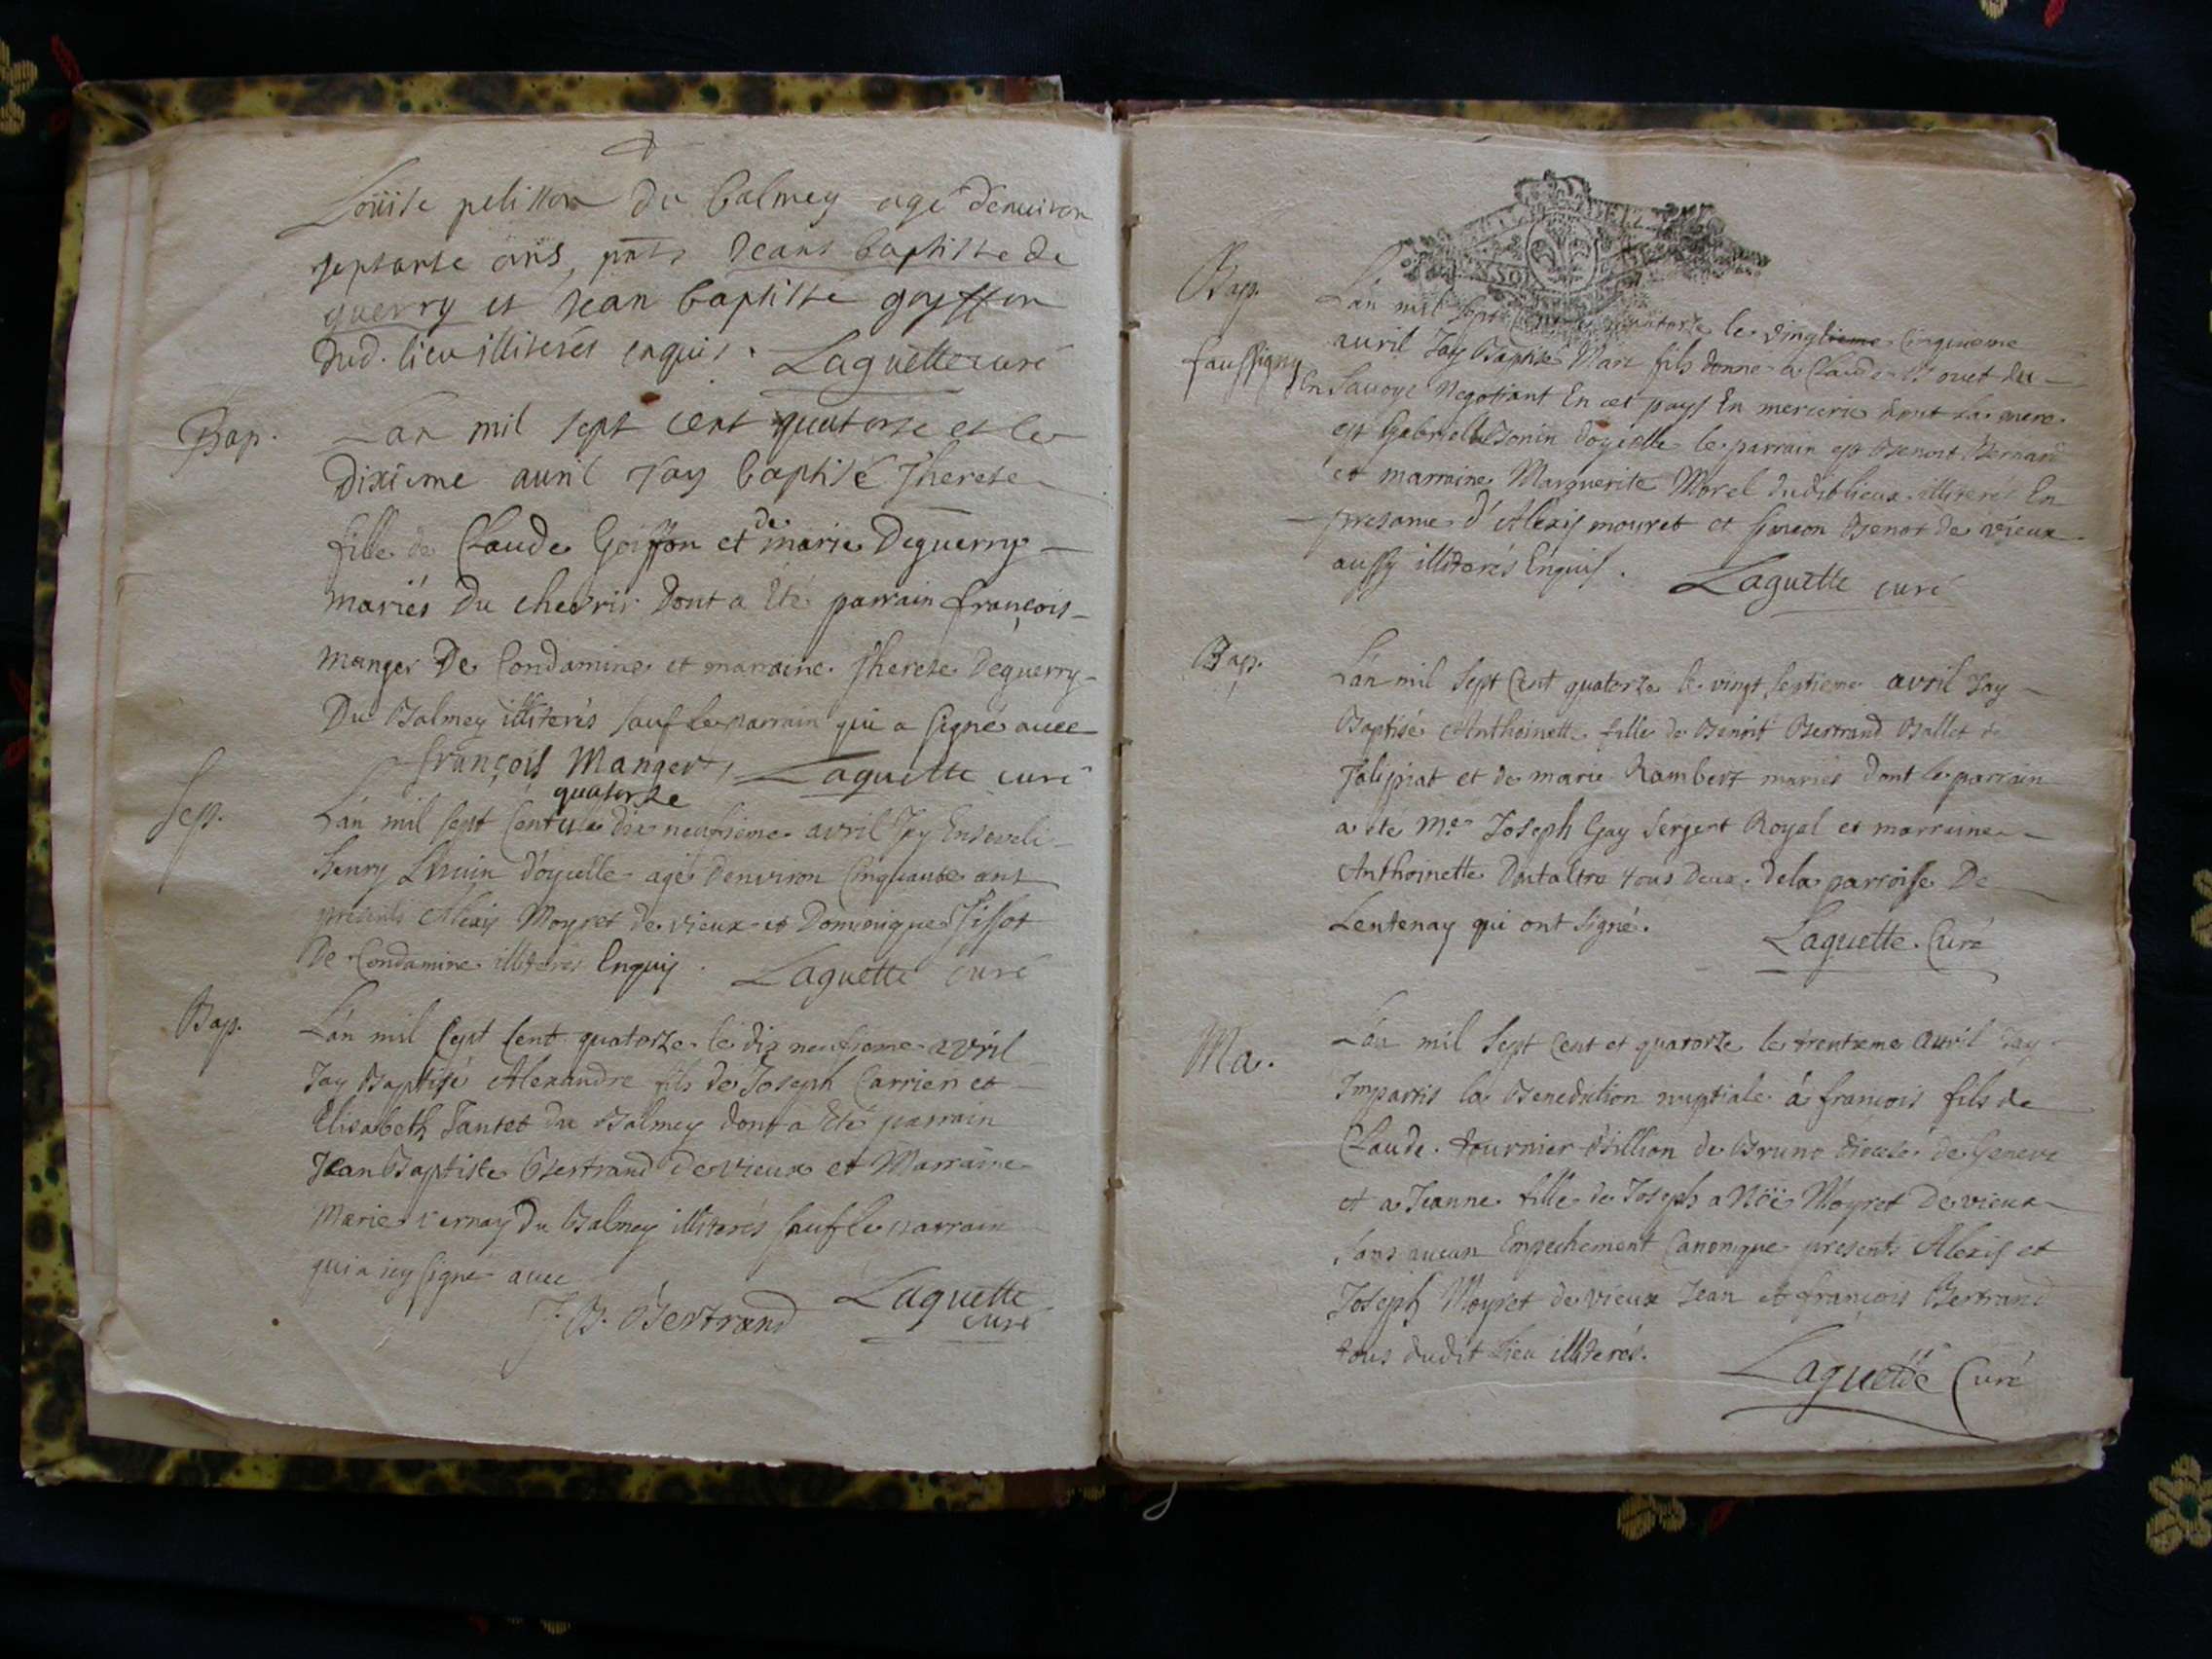 Loüise pelisson du balmey agé denuiron
septante ans, pnts Jeans baptiste de
guerry et Jean baptiste goyffon
dud. lieu illiterés enquis. Laguette curé
Bap. Lan mil sept cent quatorse et le
dixième auril Jay baptisé Therese
fille de Claude Goiffon et de marie Deguerry
mariés du chevril dont a été parrain françois
manger De Condamine et marraine Therese Deguerry
Du Balmey illiterés sauf le parrain qui a signé auec
françois Manger, Laguette curé
quatorze
Sep. L'an mil sept Cent le dix neufieme avril Jay Enseveli
henry d'oyselle agé denviron Cinquante ans
presents Alexis Moyret de vieux et Domenique Tissot
De Condamine illiterés Enquis. Laguette curé
Bap. L'an mil sept Cent quatorze le dix neufieme avril
Jay Baptisé Alexandre fils de Joseph Carrier et
Elisabeth Tantet du Balmey dont a Eté parrain
Jean Baptiste Bertrand de vieux et Marraine
Marie vernay Du Balmey illiterés sauf le parrain
qui a icy signe auec
J. B. Bertrand Laguette
curé
Bap. L'an mil sept quatorze le vingtieme Cinquieme
auril Jay Baptisé Marc fils donné a Claude Bouet du
faussigny En Savoye Negotiant En cet pays En mercerie dont la mere
est Gabrielle Bonin doyselle le parrain est Benoit Bernard
et marraine Marguerite Morel dudit lieux illiteres En
presance d'Alexis mouret et simeon Benot de vieux
aussy illiterés Enquis. Laguette curé
Bap. L'an mil sept Cent quatorze le vingt septieme avril Jay
Baptisé Anthoinette fille de Benoit Bertrand Ballet de
Jalippiat et de marie Rambert mariés dont le parrain
a eté Me Joseph Gay sergent Royal et marraine
Anthoinette tous deux de la parroisse De
Lentenay qui ont signé. Laguette Curé
Ma. L'an mil sept Cent et quatorze le trentieme auril Jay
Imparris la Benediction nuptiale á françois fils de
Claude tournier Billion de Bruno diocese de Geneve
et a Jeanne fille de Joseph a Nöë Moyret De vieux
sans aucun Empechement Canonique presents Alexis et
Joseph Moyret de vieux Jean et françois Bertrand
tous dudit Lieu illiterés. Laguette Curé